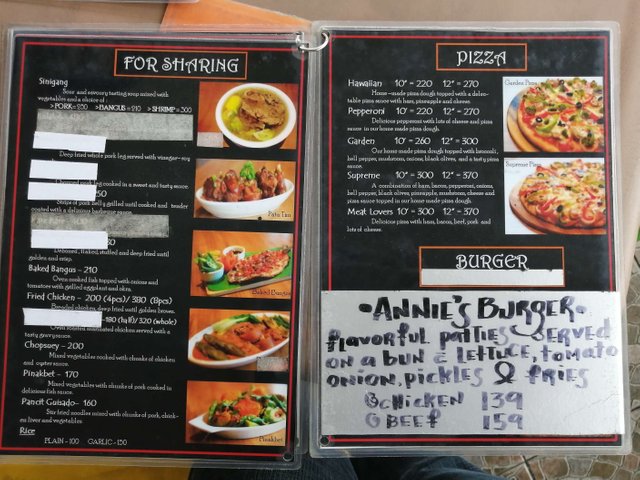 FOR SHARING
Sinigang
Sour and savoury tasting soup mixed with
vegetables and a choice of :
>PORK=200 >BANGUS=210 >SHRIMP=300
Deep fried whole pork leg served with vinegar-soy
pork leg cooked in a sweet and tasty sauce.
50
Strips of pork belly grilled until cooked and tender
coated with a delicious barbeque sauce.
80
Deboned, flaked, stuffed and deep fried until
golden and crisp.
Baked Bangus - 210
Oven cooked fish topped with onions and
tomatoes with grilled eggplant and okra.
Fried Chicken - 200 (4pcs)/ 380 (8pcs)
Breaded chicken deep fried until golden brown.
-180 (half)/320 (whole)
Oven roasted marinated chicken served with a
tasty gravy sauce
Chopsuey - 200
Mixed vegetables cooked with chunks of chicken
and oyster sauce.
Pinakbet - 170
Mixed vegetables with chunks of pork cooked in
delicious fish sauce.
Pancit Guisado- 160
Stir fried noodles mixed with chunks of pork, chick-
en liver and vegetables
Rice
PLAIN - 100 GARLIC - 150
Pata Tim
Baked Bangus
Pinakbet
PIZZA
Hawaiian 10" = 220 12" = 270
Home-made pizza dough topped with a delec-
table pizza sauce with ham, pineapple and cheese.
Pepperoni 10" = 220 12" = 270
Delicious pepperoni with lots of cheese and pizza
sauce in our home made pizza dough.
Garden 10" = 260 12" = 300
Our home made pizza dough topped with broccoli,
bell pepper, mushrooms, onions, black olives, and a tasty pizza
sauce.
Supreme 10" = 300 12" = 370
A combination of ham, bacon, pepperoni, onions,
bell pepper, black olives, pineapple, mushroom, cheese and
pizza sauce topped in our home made pizza dough.
Meat Lovers 10" = 300 12" = 370
Delicious pizza with ham, bacon, beef, pork and
lots of cheese.
Garden Pizza
Supreme Pizza
BURGER
-ANNIE'S BURGER-
flavorful patties served
on a bun c lettuce, tomato
onion, pickles & fries
CHICKEN 139
BEEF 159